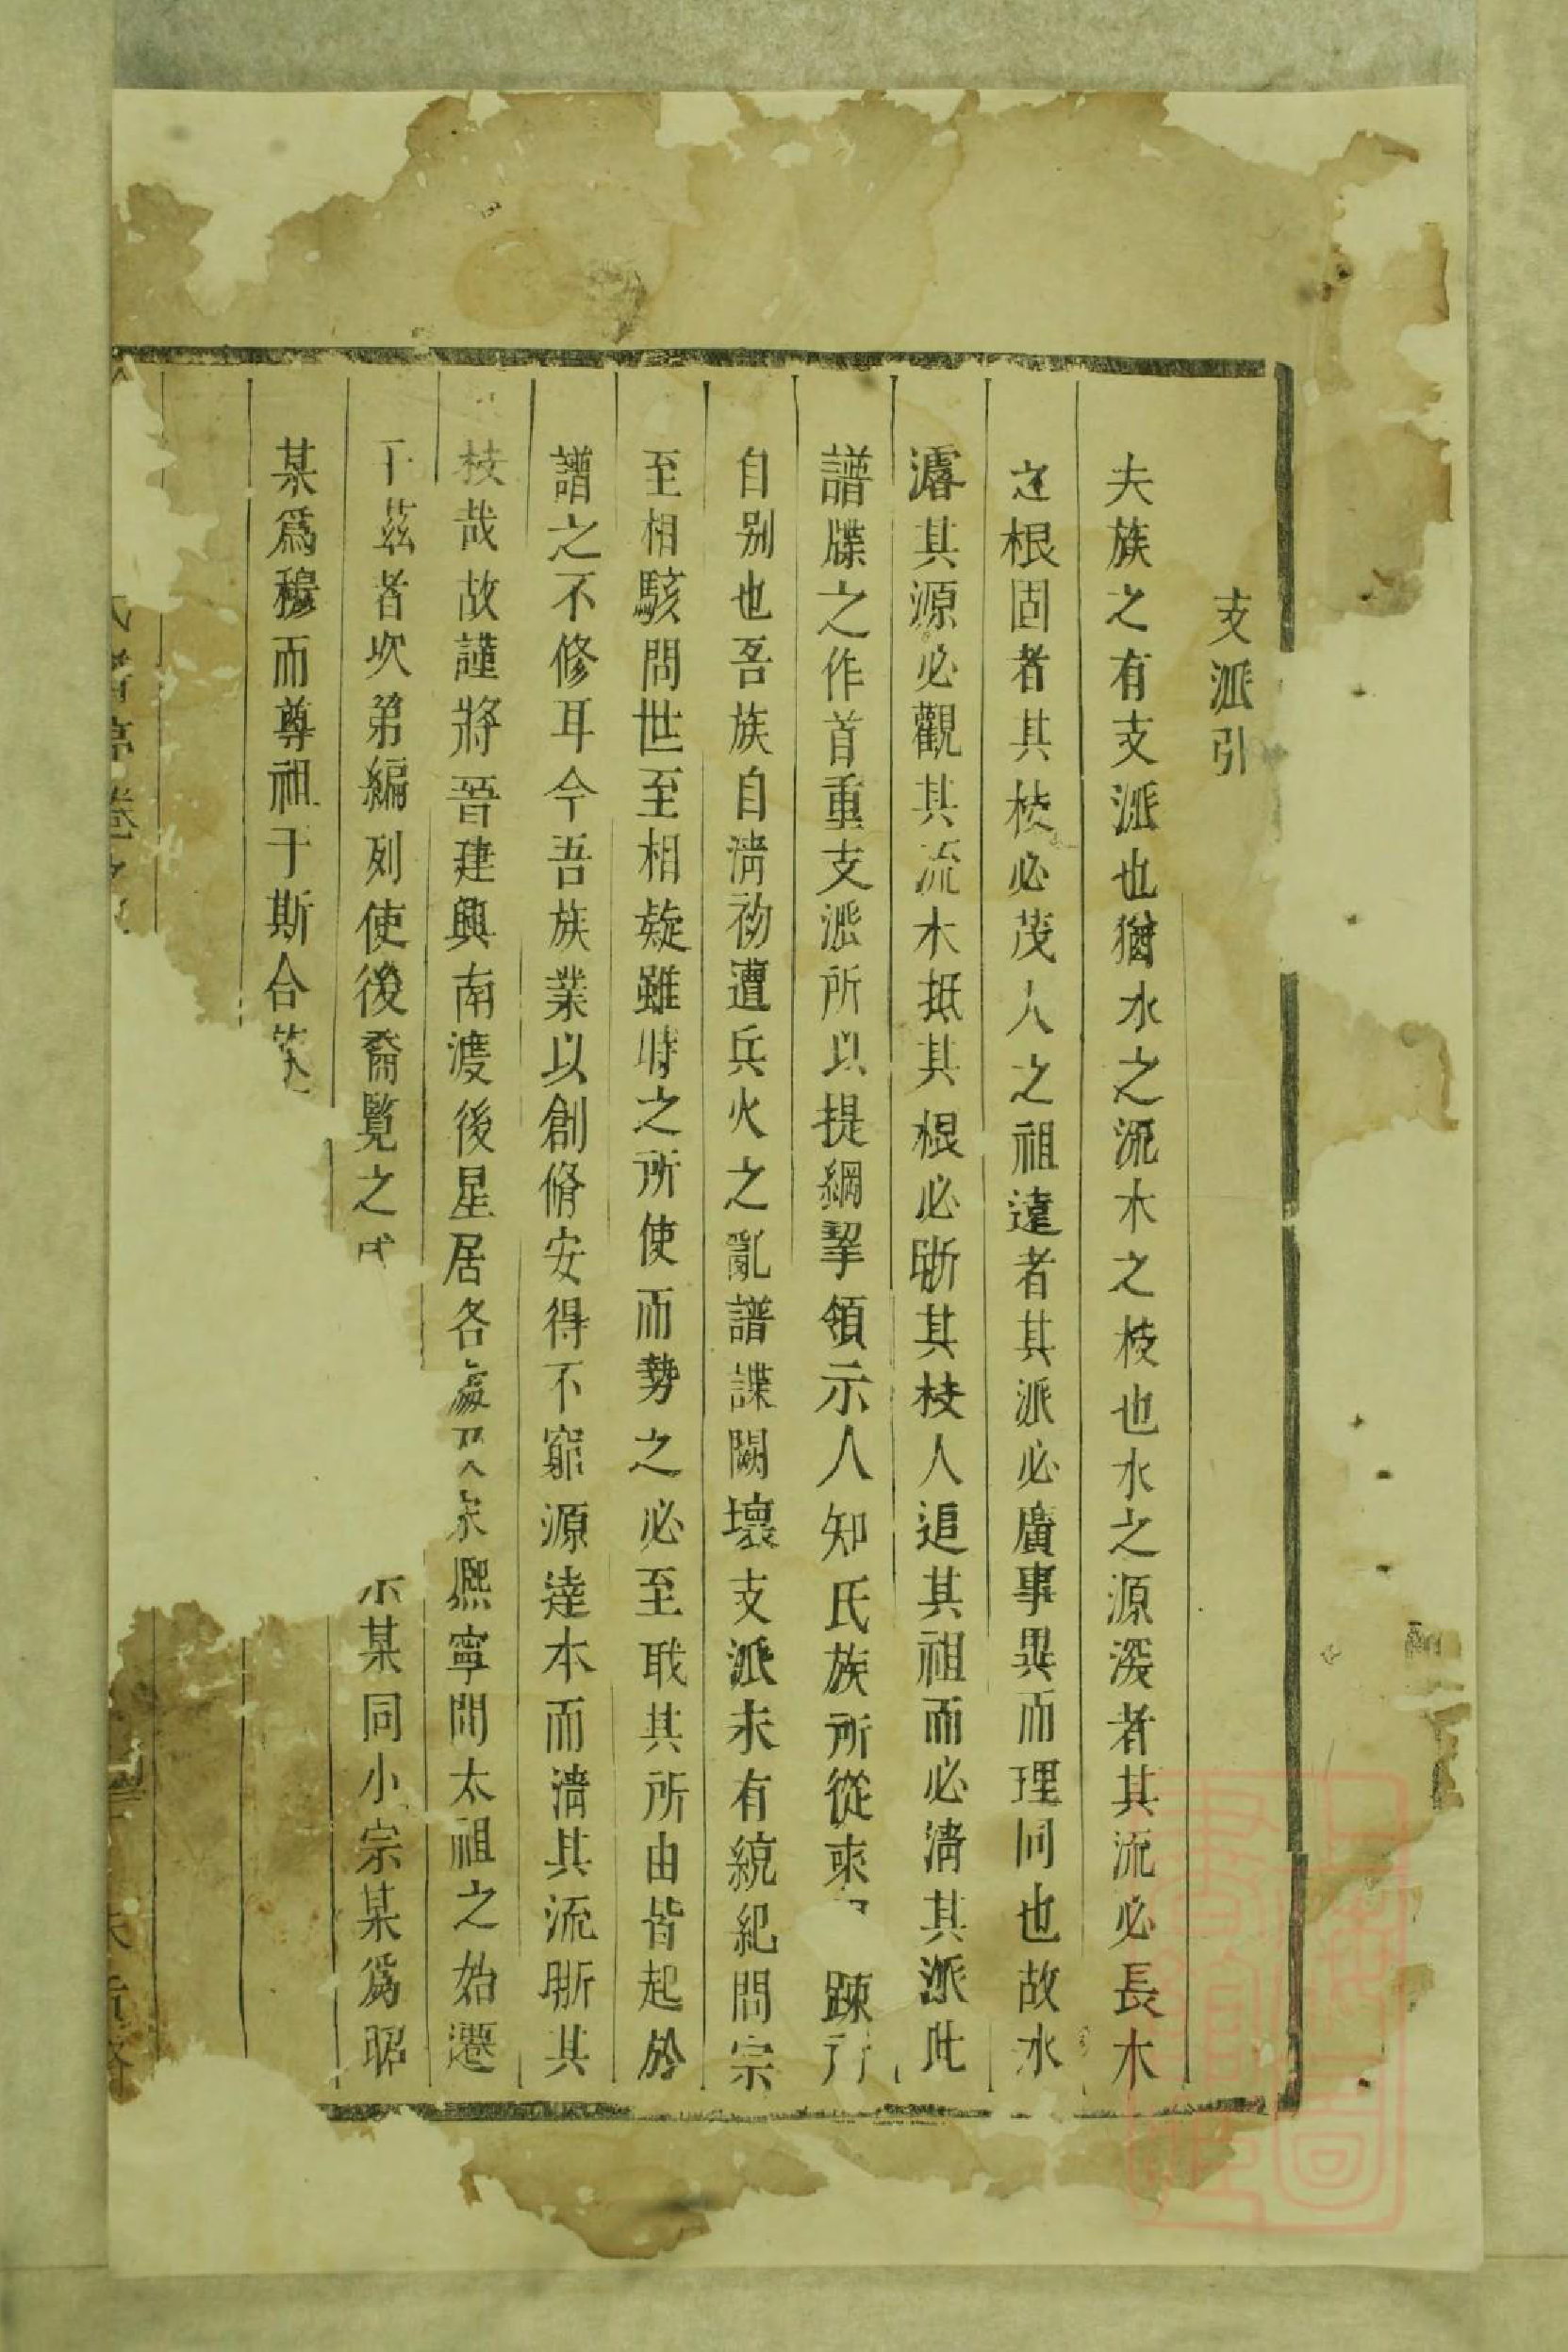 支派引
夫族之有支派也猶水之流木之枝也水之源深者其流必長木
之根固者其枝必茂人之祖遠者其派必廣事異而理同也故水
濬其源必觀其流木抵其根必晣其枝人追其祖而必清其派此
譜牒之作首重支派所以提綱挈領示人知氏族所從來 踈
自别也吾族自淸初遭兵火之亂譜諜闕壞支派未有統紀問宗
至相駭問世至相疑雖時之所使而勢之必至耿其所由皆起於
譜之不修耳今吾族業以創脩安得不窮源達本而清其流晣其
枝哉故謹將晉建興南渡後星居各處 宋熈寧間太祖之始遷
于茲者次弟編列使後裔覽之 某同小宗某爲昭
某爲穆而尊祖于斯合
上海圖書館藏